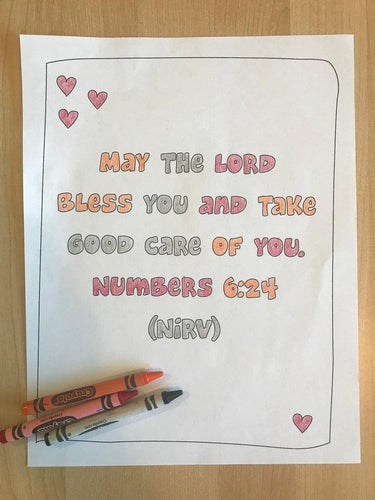 May THE LORD
BLESS YOU and Take
GOOD Care OF YOU.
NUMBERS 6:24
(NiRV)
Crayola